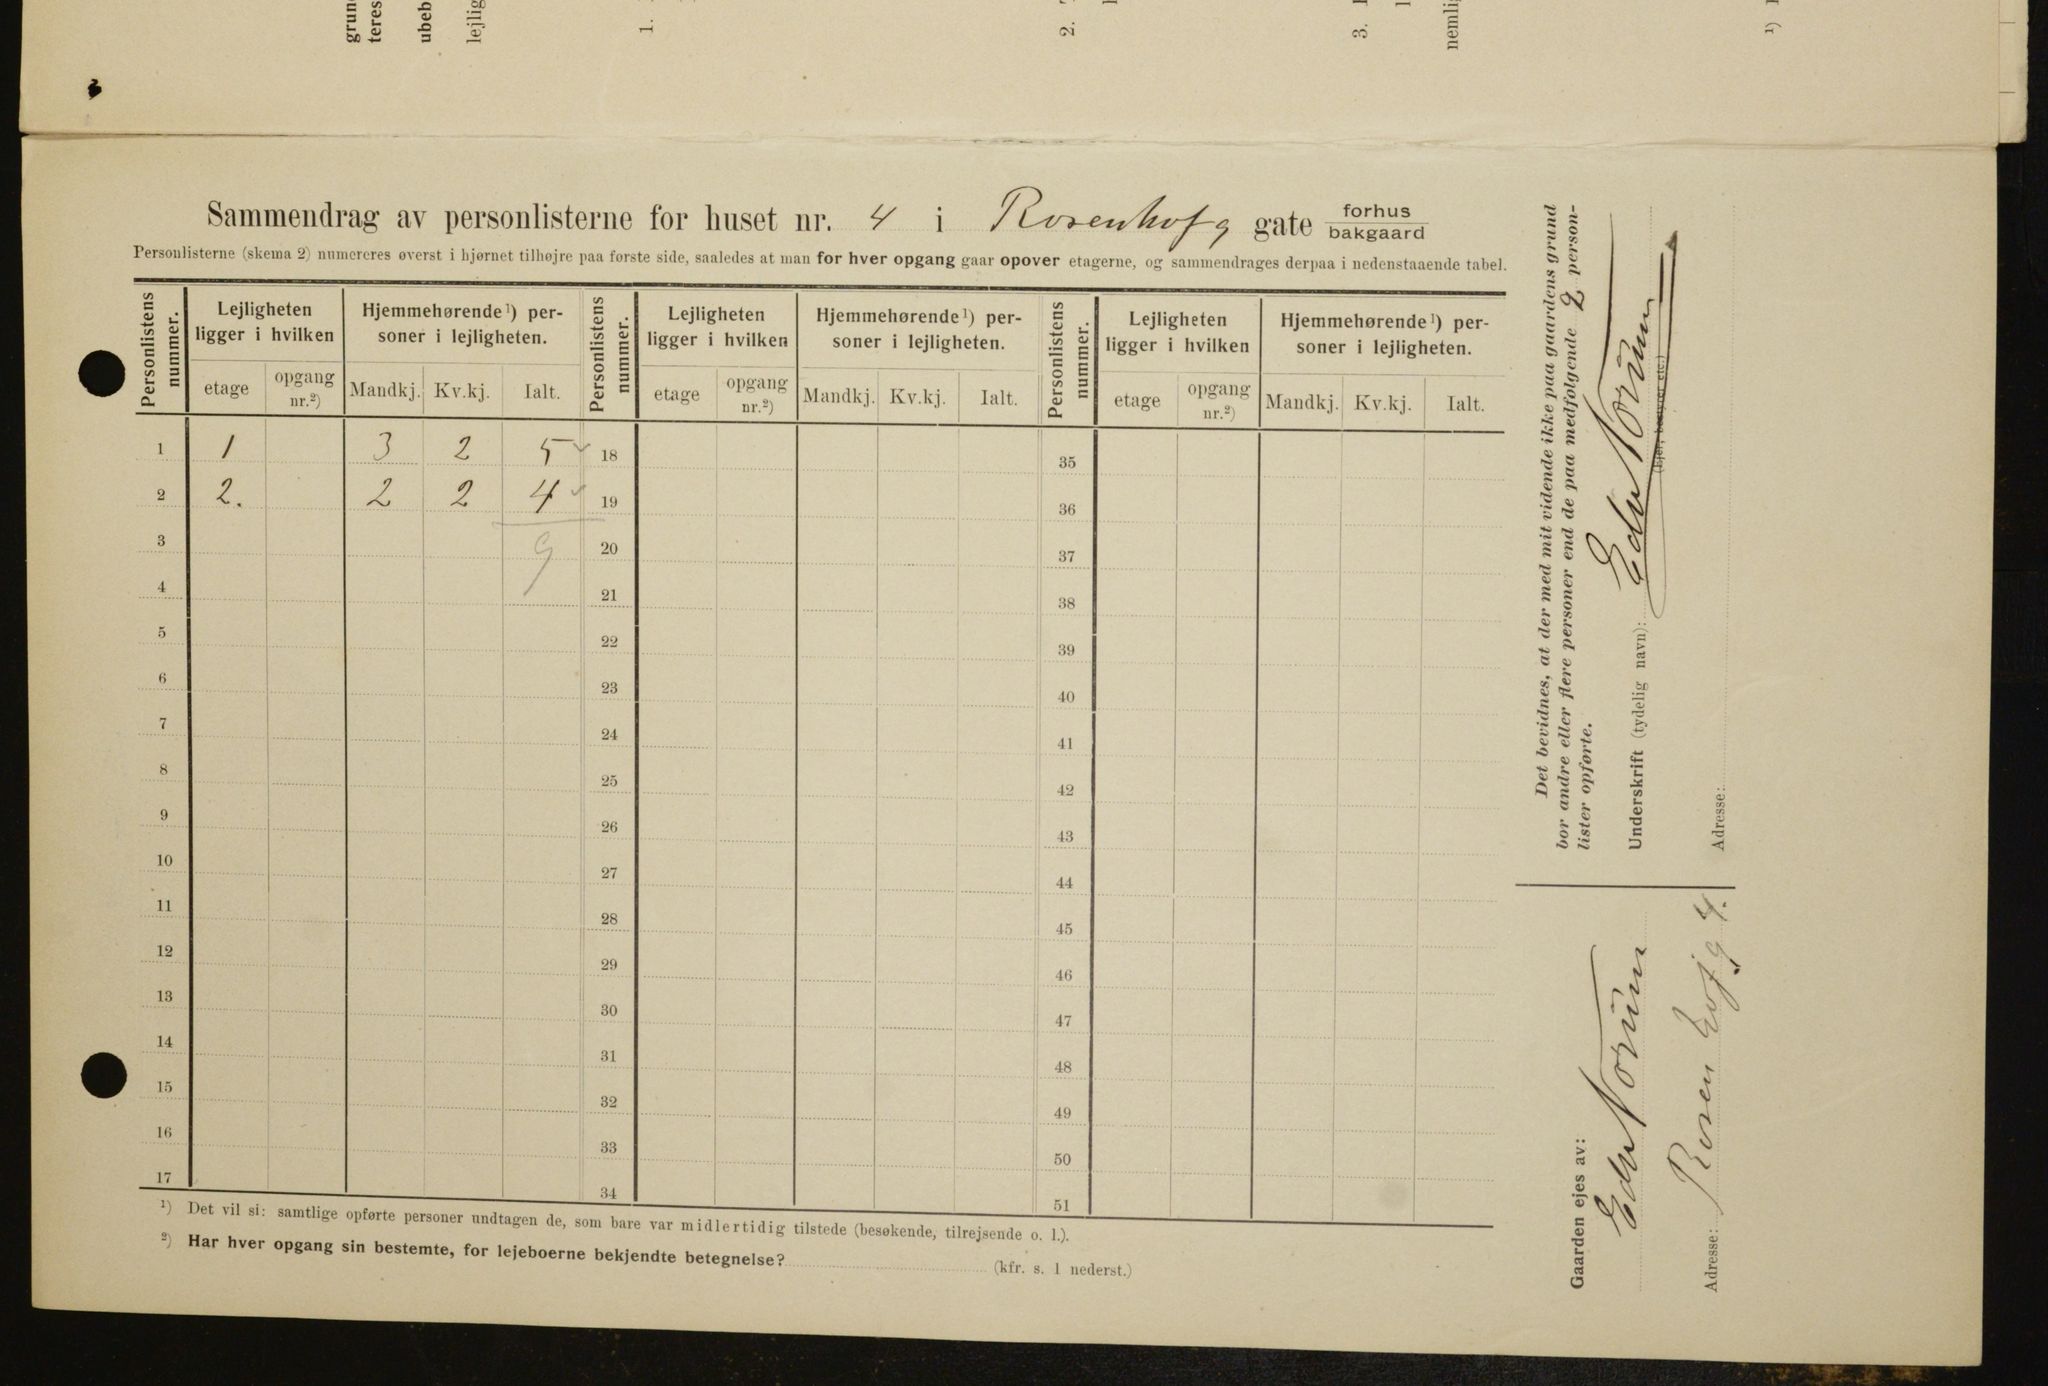 grun
teres
ubeb
lejlig
1.
2.
3.
nemli
¹)
Sammendrag av personlisterne for huset nr. 4 i Rosenhofg gate forhus bakgaard
Personlisterne (skema 2) numereres øverst i hjørnet tilhøjre paa første side, saaledes at man for hver opgang gaar opover etagerne, og sammendrages derpaa i nedenstaaende tabel.
Personlistens nummer. Lejligheten ligger i hvilken Hjemmehørende¹) personer i lejligheten. Personlistens nummer. Lejligheten ligger i hvilken Hjemmehørende¹) personer i lejligheten. Personlistens nummer. Lejligheten ligger i hvilken Hjemmehørende¹) personer i lejligheten.
etage opgang nr.²) Mandkj. Kv.kj. Ialt. etage opgang nr.²) Mandkj. Kv.kj. Ialt. etage opgang nr.²) Mandkj. Kv.kj. Ialt.
1 1 3 2 5 18 35
2 2. 2 2 4 19 36
3 9 20 37
4 21 38
5 22 39
6 23 40
7 24 41
8 25 42
9 26 43
10 27 44
11 28 45
12 29 46
13 30 47
14 31 48
15 32 49
16 33 50
17 34 51
¹) Det vil si: samtlige opførte personer undtagen de, som bare var midlertidig tilstede (besøkende, tilrejsende o. l.).
²) Har hver opgang sin bestemte, for lejeboerne bekjendte betegnelse? (kfr. s. 1 nederst.)
Det bevidnes, at der med mit vidende ikke paa gaardens grund
bor andre eller flere personer end de paa medfølgende 2 person-
lister opførte.
Underskrift (tydelig navn): Edv Norum
(ejer, bestyrer etc.)
Adresse:
Gaarden ejes av:
Edv Norum
Adresse: Rosenhofg 4.